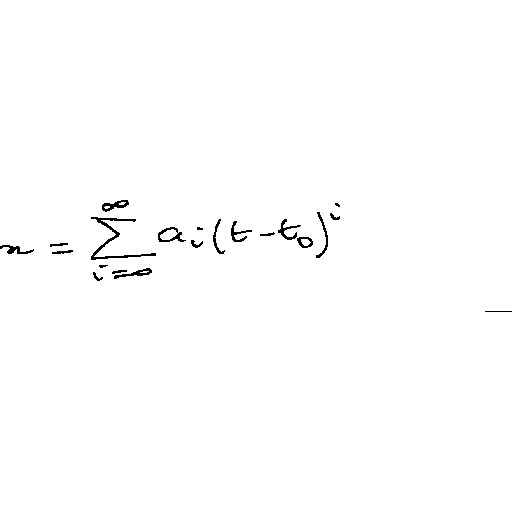 x = \sum_{i=0}^{\infty} a_i (t - t_0)^i